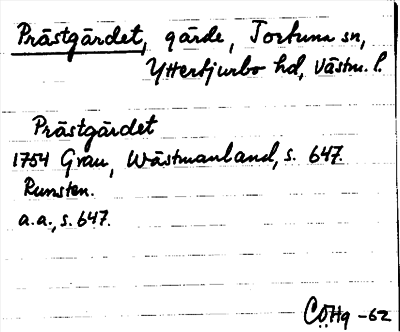 Prästgärdet, gärde, Tortuna sn,
Ytterbjurbo hd, Västm. l.
Prästgärdet
1754 Grau, Wästmanland, s. 647.
Runsten.
a.a., s. 647.
CÖHg -62